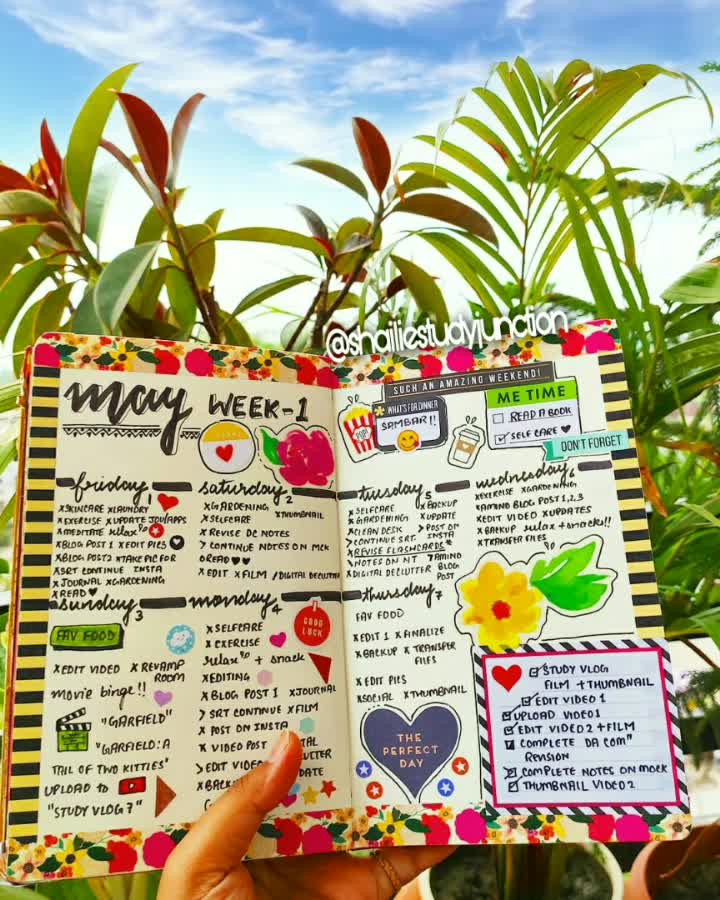 @shailiestudyjunction
may WEEK-1
friday 1
X SKINCARE X LAUNDRY
X EXERCISE X UPDATE JOU/APPS
X MEDITATE relax
X BLOG POST 1 X EDIT PICS
X BLOG POST 2 X TAKE PIC FOR
X SRT CONTINUE INSTA
X JOURNAL X GARDENING
X READ
saturday 2
X GARDENING
X SELFCARE X THUMBNAIL
X REVISE DC NOTES
> CONTINUE NOTES ON MCK
O READ
X EDIT X FILM / DIGITAL DECLUTTER
sunday 3
FAV FOOD
X EDIT VIDEO X REVAMP
ROOM
movie binge!!
"GARFIELD"
"GARFIELD: A
TAIL OF TWO KITTIES"
UPLOAD TO
"STUDY VLOG 7"
monday 4
X SELFCARE
X EXERCISE
relax + snack
X EDITING
X BLOG POST 1 X JOURNAL
> SRT CONTINUE X FILM
X POST ON INSTA
X VIDEO POST
> EDIT VIDEO
X BACKUP
GOOD
LUCK
SUCH AN AMAZING WEEKEND!
POP!
WHAT'S FOR DINNER
SAMBAR!!
ME TIME
READ A BOOK
SELF CARE
DON'T FORGET
tuesday 5
X SELFCARE X BACKUP
X GARDENING X UPDATE
X CLEAN DESK > POST ON
> CONTINUE SRT INSTA
X REVISE FLASHCARDS
X NOTES ON NT 7AMIND
X DIGITAL DECLUTTER BLOG
POST
wednesday 6
X EXERCISE X GARDENING
X AMIND BLOG POST 1,2,3
X EDIT VIDEO X UPDATES
X BACKUP relax + snacks!!
X TRANSFER FILES
thursday 7
FAV FOOD
X EDIT 1 X ANALIZE
X BACKUP X TRANSFER
FILES
X EDIT PICS
X SOCIAL X THUMBNAIL
THE
PERFECT
DAY
STUDY VLOG
FILM + THUMBNAIL
EDIT VIDEO 1
UPLOAD VIDEO 1
EDIT VIDEO 2 + FILM
COMPLETE DA COM"
REVISION
COMPLETE NOTES ON MOCK
THUMBNAIL VIDEO 2